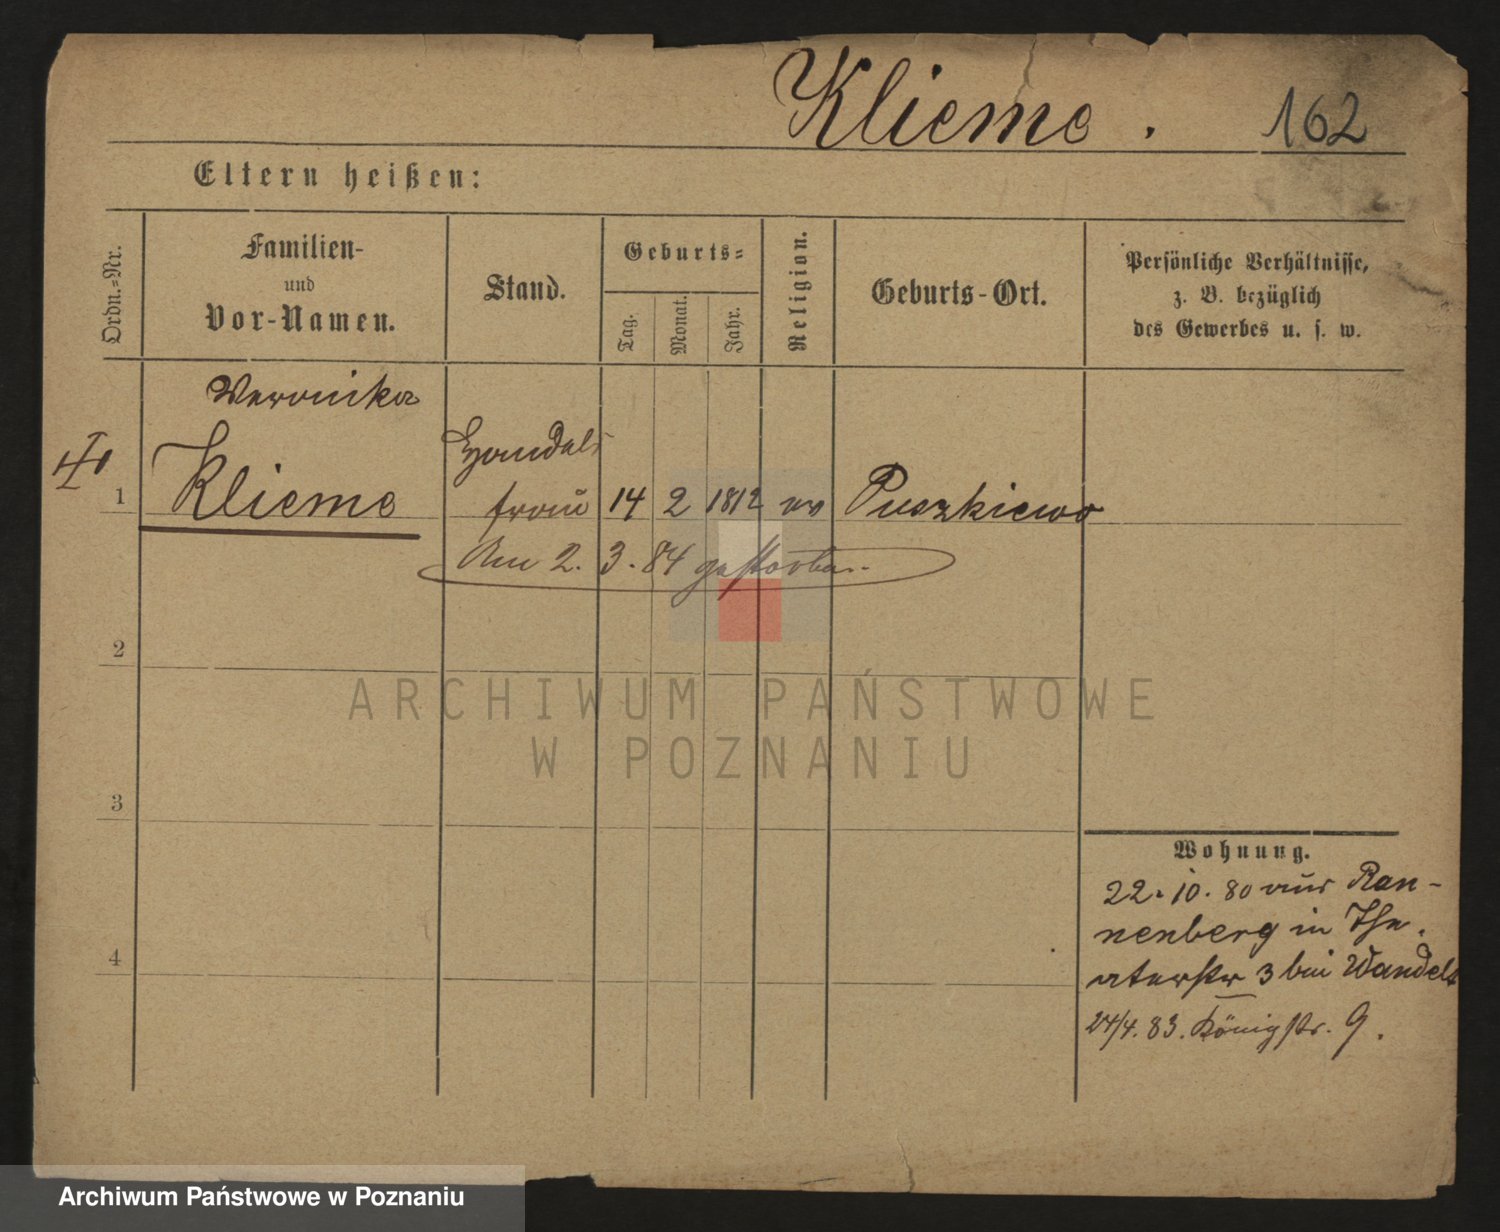 Klieme. 162
Eltern heißen:
Ordn.-Nr.
Familien-
und
Vor-Namen.
Stand.
Geburts-
Tag.
Monat.
Jahr.
Religion.
Geburts-Ort.
Persönliche Verhältnisse,
z. B. bezüglich
des Gewerbes u. s. w.
Veronika
1 Klieme
Handels
frau 14 2 1812 ev Puszkiewo
Am 2. 3. 84 gestorben.
2
3
4
Wohnung.
22.10.80 aus Ran-
nenberg in The.
aterstr 3 bei Wandelt
24/4.83. Königstr. 9.
ARCHIWUM PAŃSTWOWE
W POZNANIU
Archiwum Państwowe w Poznaniu